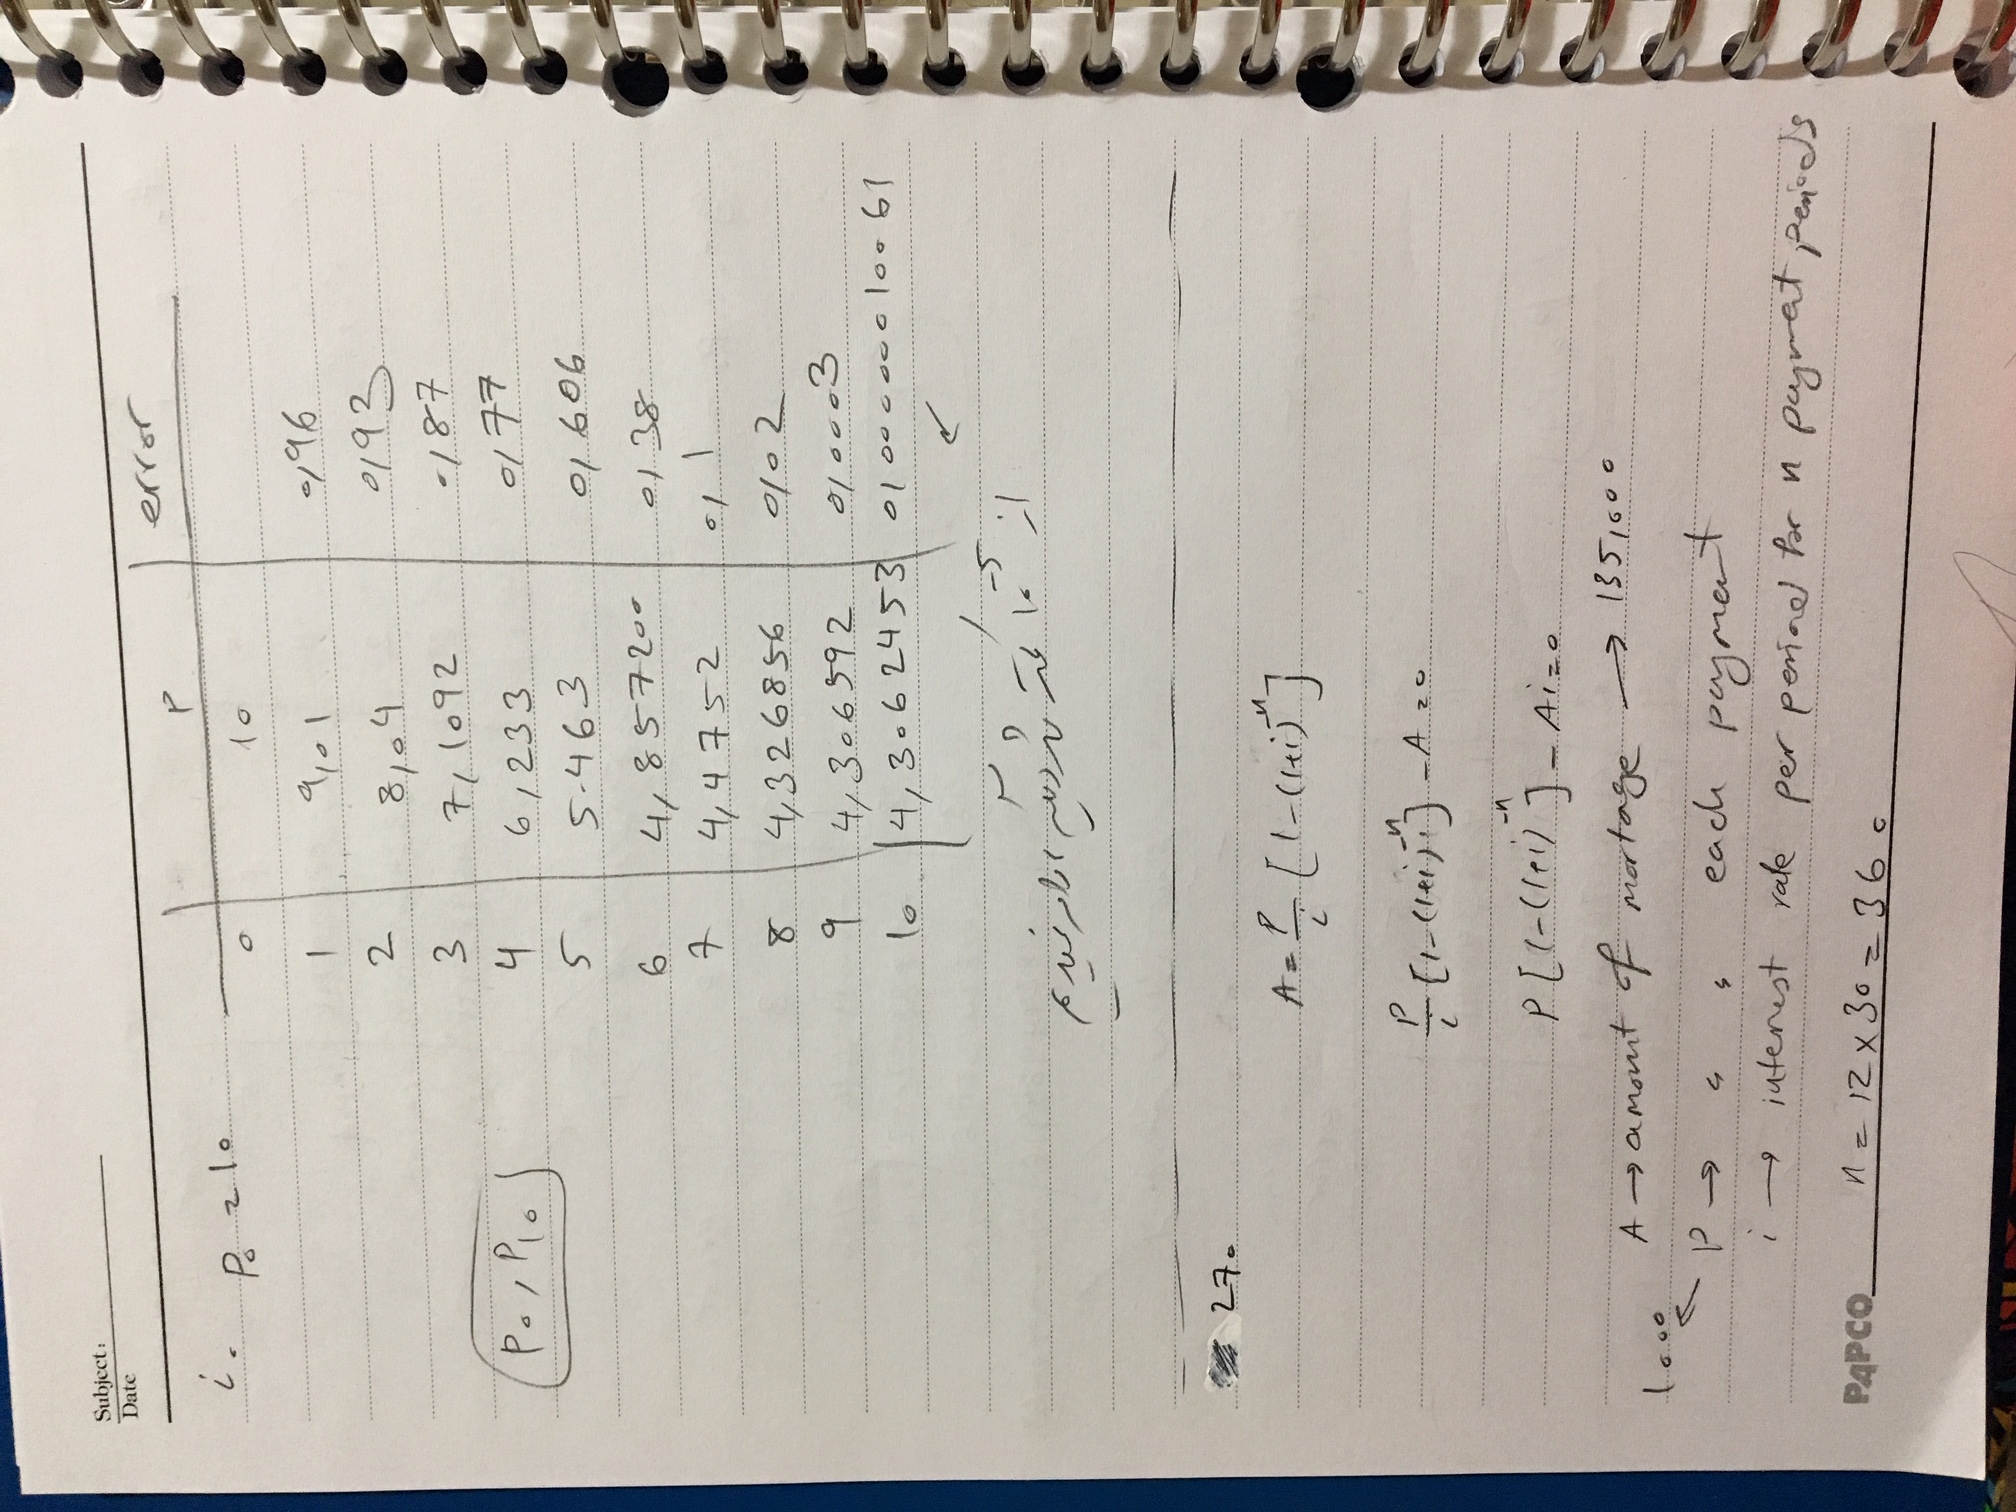 Subject:
Date
P error
i. P₀ = 10 0 10
1 9,01 0,96
2 8,04 0,93
3 7,1092 0,87
P₀, P₁₀ 4 6,233 0,77
5 5.463 0,606
6 4,857200 0,38
7 4,4752 0,1
8 4,326856 0,02
9 4,306592 0,0003
10 4,3062453 0,00000010061
از 10⁻⁵ کمتر شد دیگه ادامه نمیدیم
27.
A = P/i [1-(1+i)⁻ⁿ]
P/i [1-(1+i)⁻ⁿ] - A = 0
P[1-(1+i)⁻ⁿ] - Ai = 0
A → amount of mortage → 135,000
1000 ← P → " " each payment
i → interest rate per period for n payment periods
PAPCO n = 12 × 30 = 360